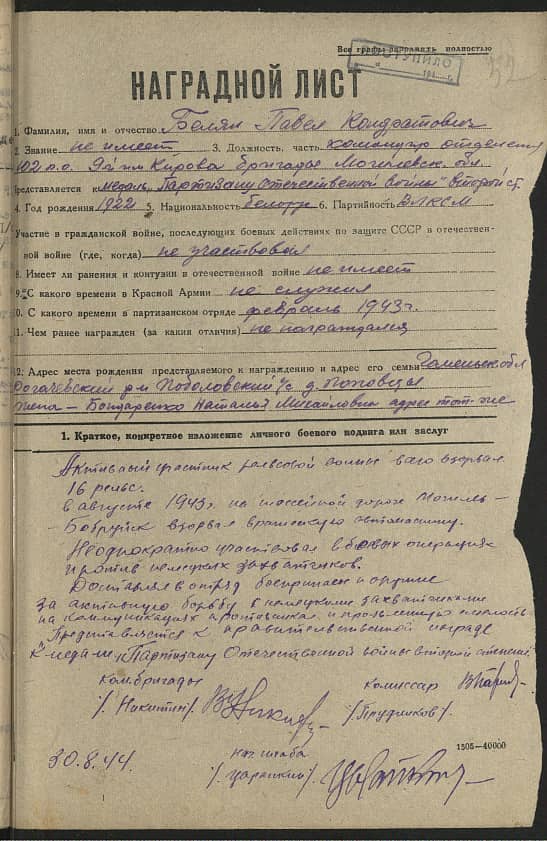 Все графы заполнять полностью
ПОСТУПИЛО
НАГРАДНОЙ ЛИСТ
1. Фамилия, имя и отчество Белян Павел Кондратович
2. Звание не имеет 3. Должность, часть командир отделения
102 п.о. Кирова бригады Могилевск. обл.
Представляется к медаль „Партизану Отечественной войны" второй ст
4. Год рождения 1922 5. Национальность белорус 6. Партийность ВЛКСМ
Участие в гражданской войне, последующих боевых действиях по защите СССР в отечествен-
ной войне (где, когда) не участвовал
8. Имеет ли ранения и контузии в отечественной войне не имеет
9. С какого времени в Красной Армии не служил
0. С какого времени в партизанском отряде февраль 1943г.
1. Чем ранее награжден (за какия отличия) не награждался
2. Адрес места рождения представляемого к награждению и адрес его семьи Гомельск обл
Рогачевский р-н Поболовский с/с д.
жена — Бондаренко Наталья Михайловна адрес тот-же
1. Краткое, конкретное изложение личного боевого подвига или заслуг
Активный участник рельсовой войны взорвал
16 рельс.
в августе 1943г. на шоссейной дороге Могилев —
Бобруйск взорвал вражескую автомашину.
Неоднократно участвовал в боевых операциях
против немецких захватчиков.
Доставлял в отряд боеприпасы и оружие
за активную борьбу с немецкими захватчиками
на коммуникациях противника и проявленную смелость
Представляется к правительственной награде
к медали „Партизану Отечественной войны второй степени"
Комбригады комиссар
/Никитин/ /Прудников/
1505—40000
30.8.44. нач штаба